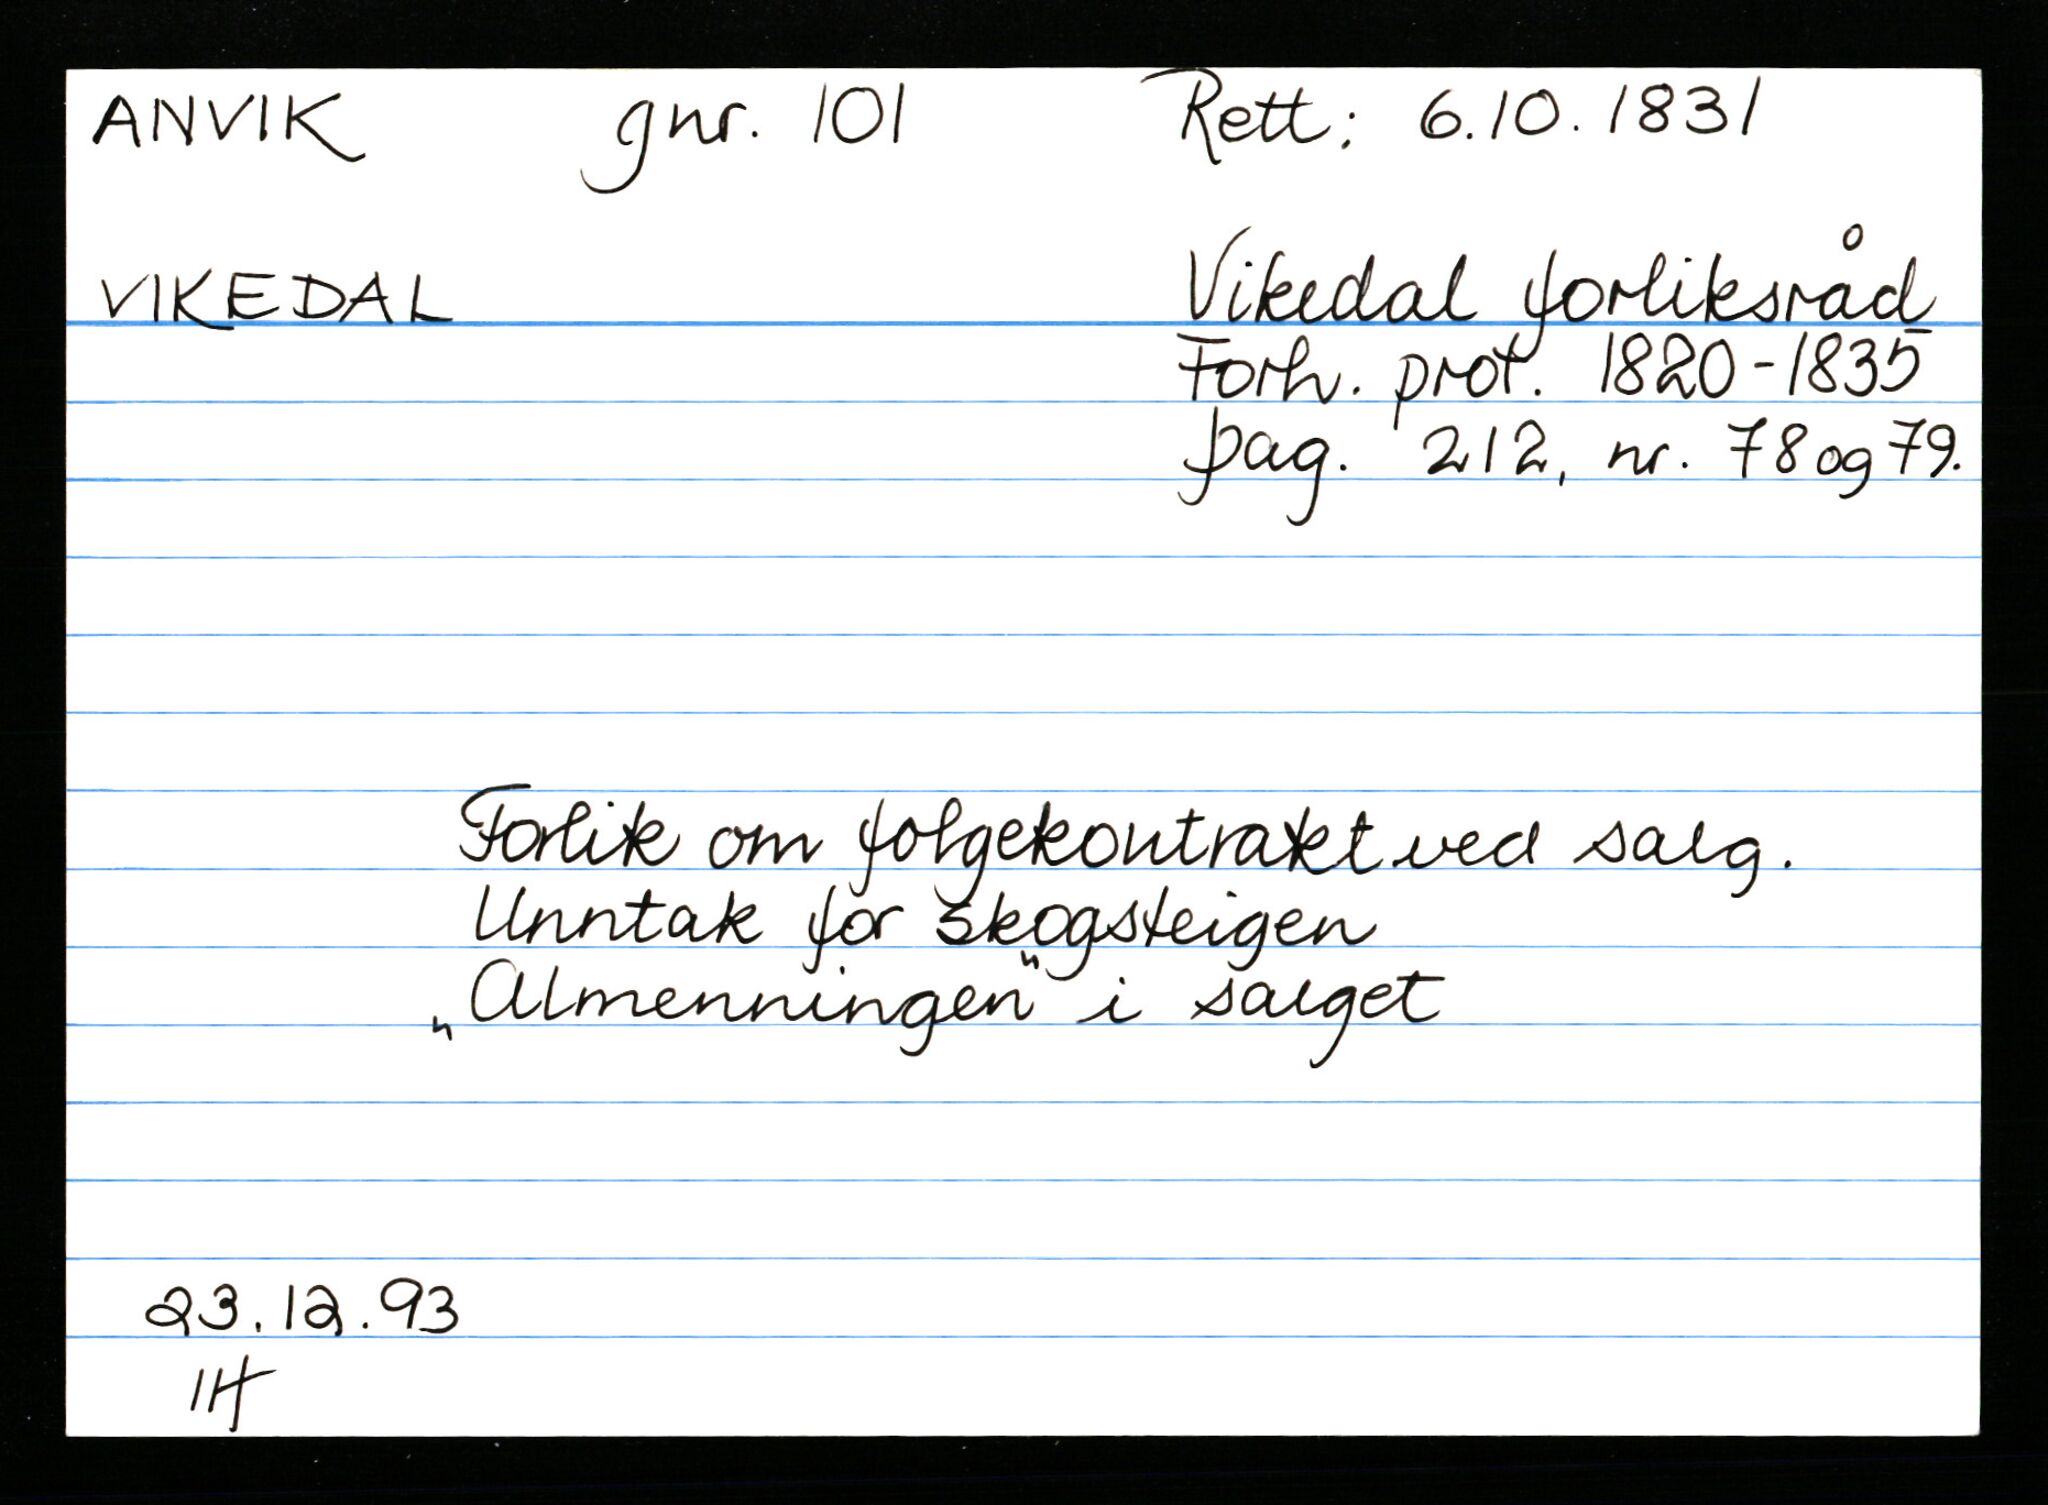 ANVIK gnr. 101 Rett: 6.10.1831
VIKEDAL Vikedal forliksråd
Forh. prot. 1820-1835
pag. 212, nr. 78 og 79.
Forlik om folgekontrakt ved salg.
Unntak for skogsteigen
„Almenningen" i salget
23.12.93
IH